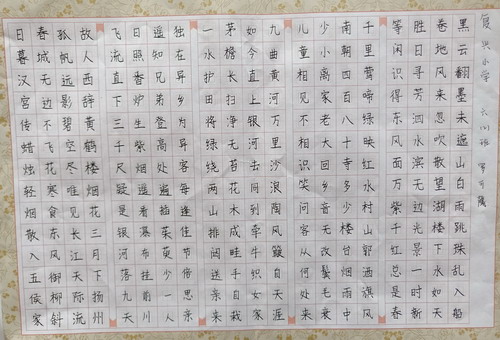 复兴小学
黑云翻墨未遮山白雨跳珠乱入船
卷地风来忽吹散望湖楼下水如天
胜日寻芳泗水滨无边光景一时新
等闲识得东风面万紫千红总是春
千里莺啼绿映红水村山郭酒旗风
南朝四百八十寺多少楼台烟雨中
少小离家老大回乡音无改鬓毛衰
儿童相见不相识笑问客从何处来
九曲黄河万里沙浪淘风簸自天涯
如今直上银河去同到牵牛织女家
茅檐长扫净无苔花木成畦手自栽
一水护田将绿绕两山排闼送亲来
独在异乡为异客每逢佳节倍思亲
遥知兄弟登高处遍插茱萸少一人
日照香炉生紫烟遥看瀑布挂前川
飞流直下三千尺疑是银河落九天
故人西辞黄鹤楼烟花三月下扬州
孤帆远影碧空尽唯见长江天际流
春城无边不飞花寒食东风御柳斜
日暮汉宫传蜡烛轻烟散入五侯家